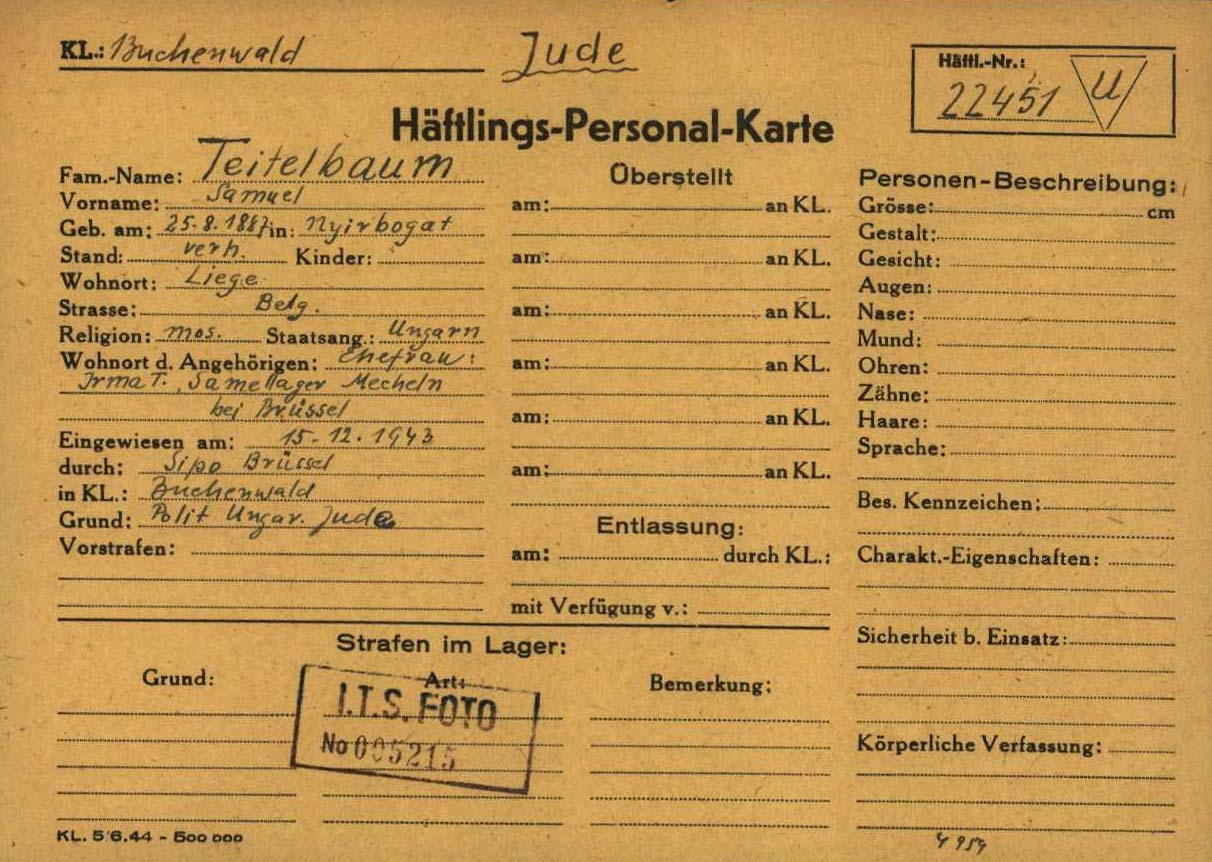 KL.: Buchenwald
Jude
Häftl.-Nr.:
22451 U
Häftlings-Personal-Karte
Fam.-Name: Teitelbaum
Vorname: Samuel
Geb. am: 25.8.1887 in: Nyirbogat
Stand: verh. Kinder:
Wohnort: Liege
Strasse: Belg.
Religion: mos. Staatsang.: Ungarn
Wohnort d. Angehörigen: Ehefrau:
Irma T., Samellager Mecheln
bei Brüssel
Eingewiesen am: 15.12.1943
durch: Sipo Brüssel
in KL.: Buchenwald
Grund: Polit Ungar. Jude
Vorstrafen:
Überstellt
am: an KL.
am: an KL.
am: an KL.
am: an KL.
am: an KL.
am: an KL.
Entlassung:
am: durch KL.:
mit Verfügung v.:
Personen-Beschreibung:
Grösse: cm
Gestalt:
Gesicht:
Augen:
Nase:
Mund:
Ohren:
Zähne:
Haare:
Sprache:
Bes. Kennzeichen:
Charakt.-Eigenschaften:
Sicherheit b. Einsatz:
Körperliche Verfassung:
Strafen im Lager:
Grund: Art: Bemerkung:
I.T.S. FOTO
No 005215
KL. 5/6.44 - 500 000